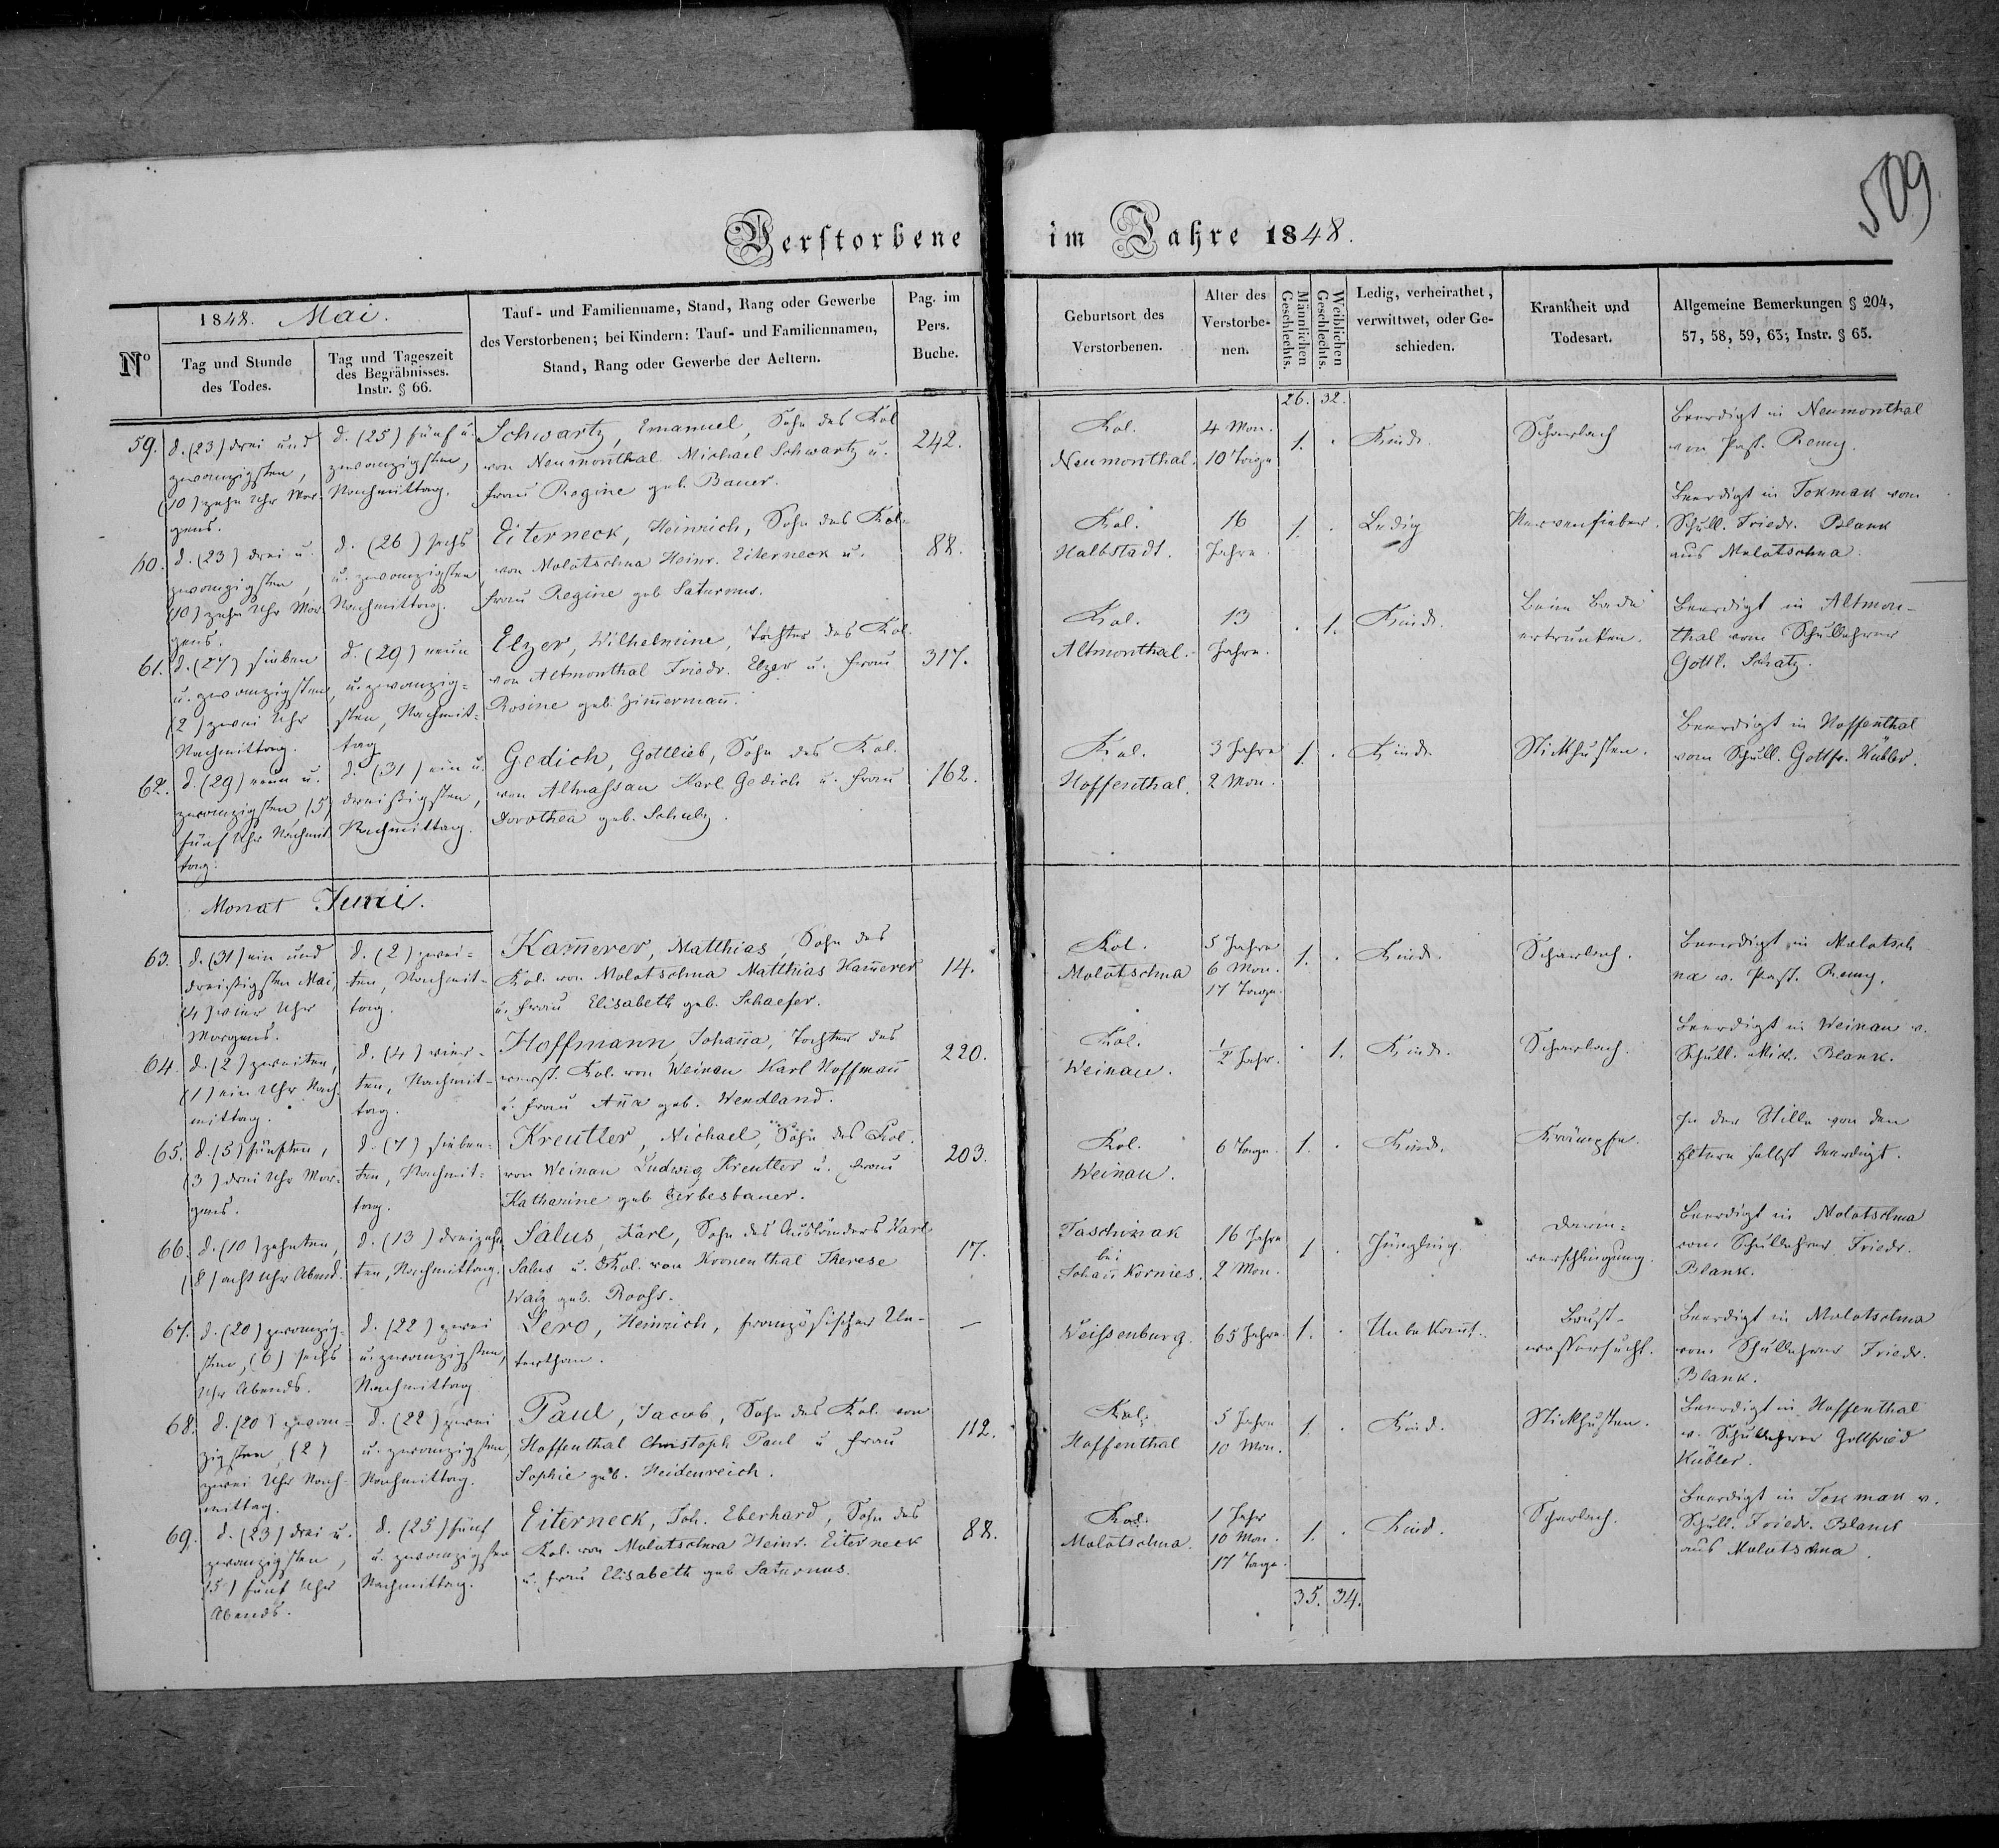 509
Verstorbene im Jahre 1848.
Nº
1848. Mai.
Tag und Stunde des Todes.
Tag und Tageszeit des Begräbnisses. Instr. § 66.
Tauf- und Familienname, Stand, Rang oder Gewerbe
des Verstorbenen; bei Kindern: Tauf- und Familiennamen,
Stand, Rang oder Gewerbe der Aeltern.
Pag. im Pers. Buche.
Geburtsort des Verstorbenen.
Alter des Verstorbe-nen.
Männlichen Geschlechts.
Weiblichen Geschlechts.
Ledig, verheirathet, verwittwet, oder Ge-schieden.
Krankheit und Todesart.
Allgemeine Bemerkungen § 204, 57, 58, 59, 63; Instr. § 65.
26. 32.
59.
d. (23) drei und
zwanzigsten,
(10) zehn Uhr Mor-
gens.
d. (25) fünf u.
zwanzigsten,
Nachmittag.
Schwartz, Emanuel, Sohn des Kol.
von Neumonthal Michael Schwartz u.
Frau Regine geb. Bauer.
242.
Kol.
Neumonthal.
4 Mon.
10 Tage
1.
Kind.
Scharlach
Beerdigt in Neumonthal
von Past. Remy.
60.
d. (23) drei u.
zwanzigsten,
(10) zehn Uhr Mor-
gens.
d. (26) sechs
u. zwanzigsten
Nachmittag.
Eiterneck, Heinrich, Sohn des Kol.
von Molotschna Heinr. Eiterneck u.
Frau Regine geb. Saturnus.
88.
Kol.
Halbstadt.
16
Jahre.
1.
Ledig
Nervenfieber.
Beerdigt in Tokmak vom
Schull. Friedr. Blank
aus Molotschna.
61.
d. (27) sieben
u. zwanzigsten,
(2) zwei Uhr
Nachmittag.
d. (29) neun
u. zwanzig-
sten, Nachmit-
tag
Elzer, Wilhelmine, Tochter des Kol.
von Altmonthal Friedr. Elzer u. Frau
Rosine geb. Zim̄erman̄.
317.
Kol.
Altmonthal.
13
Jahre.
1.
Kind.
Beim Bade
ertrunken.
Beerdigt in Altmon-
thal vom Schullehrer
Gottl. Schatz.
62.
d. (29) neun u.
zwanzigsten (5)
fünf Uhr Nachmit-
tag.
d. (31) ein u.
dreißigsten,
Nachmittag.
Gedich, Gottlieb, Sohn des Kol.
von Altnassau Karl Gedich u. Frau
Dorothea geb. Schulz.
162.
Kol.
Hoffenthal.
3 Jahre
2 Mon.
1.
Kind.
Stickhusten.
Beerdigt in Hoffenthal
vom Schull. Gottfr. Kübler.
Monat Juni.
63.
d. (31) ein und
dreißigsten Mai,
(4) vier Uhr
Morgens.
d. (2) zwei-
ten, Nachmit-
tag.
Kam̄erer, Matthias, Sohn des
Kol. von Molotschna Matthias Kam̄erer
u. Frau Elisabeth geb. Schaefer.
14.
Kol.
Molotschna
5 Jahre
6 Mon.
17 Tage.
1.
Kind.
Scharlach.
Beerdigt in Molotsch
na v. Past. Remy.
64.
d. (2) zweiten,
(1) ein Uhr Nach-
mittag.
d. (4) vier-
ten, Nachmit-
tag.
Hoffmann, Johan̄a, Tochter des
verst. Kol. von Weinau Karl Hoffman̄
u. Frau An̄a geb. Wendland.
220.
Kol.
Weinau.
1/2 Jahr.
1.
Kind.
Scharlach.
Beerdigt in Weinau v.
Schull. Mich. Blank.
65.
d. (5) fünften,
(3) drei Uhr Mor-
gens.
d. (7) sieben-
ten, Nachmit-
tag.
Kreutler, Michael, Sohn des Kol.
von Weinau Ludwig Kreutler u. Frau
Katharine geb. Gerbesbauer.
203.
Kol.
Weinau.
6 Tage.
1.
Kind.
Krämpfe.
In der Stille von den
Eltern selbst beerdigt.
66.
d. (10) zehnten,
(8) acht Uhr Abend.
d. (13) dreizehn
ten, Nachmittag.
Salus, Karl, Sohn des Ausländers Karl
Salus u. Kol. von Kronenthal Therese
Walz geb. Roofs.
17.
Taschinak
bei
Johan̄ Kornies.
16 Jahre
2 Mon.
1.
Jüngling.
Darm-
verschlingung.
Beerdigt in Molotschna
vom Schullehrer Friedr.
Blank.
67.
d. (20) zwanzig-
sten, (6) sechs
Uhr Abends.
d. (22) zwei
u. zwanzigsten,
Nachmittag
Lero, Heinrich, französischer Un-
terthan.
—
Weissenburg.
65 Jahre.
1.
Unbekan̄t.
Brust-
wassersucht.
Beerdigt in Molotschna
vom Schullehrer Friedr.
Blank.
68.
d. (20) zwan-
zigsten, (2)
zwei Uhr Nach-
mittag.
d. (22) zwei
u. zwanzigsten,
Nachmittag.
Paul, Jacob, Sohn des Kol. von
Hoffenthal Christoph Paul u. Frau
Sophie geb. Heidenreich.
112.
Kol.
Hoffenthal
5 Jahre
10 Mon.
1.
Kind.
Stickhusten.
Beerdigt in Hoffenthal
v. Schullehrer Gottfried
Kübler.
69.
d. (23) drei u.
zwanzigsten,
(5) fünf Uhr
Abends.
d. (25) fünf
u. zwanzigsten
Nachmittag.
Eiterneck, Joh. Eberhard, Sohn des
Kol. von Molotschna Heinr. Eiterneck
u. Frau Elisabeth geb. Saturnus.
88.
Kol.
Molotschna.
1 Jahr
10 Mon.
17 Tage.
1.
Kind.
Scharlach.
Beerdigt in Tokmak v.
Schull. Friedr. Blank
aus Molotschna.
35. 34.